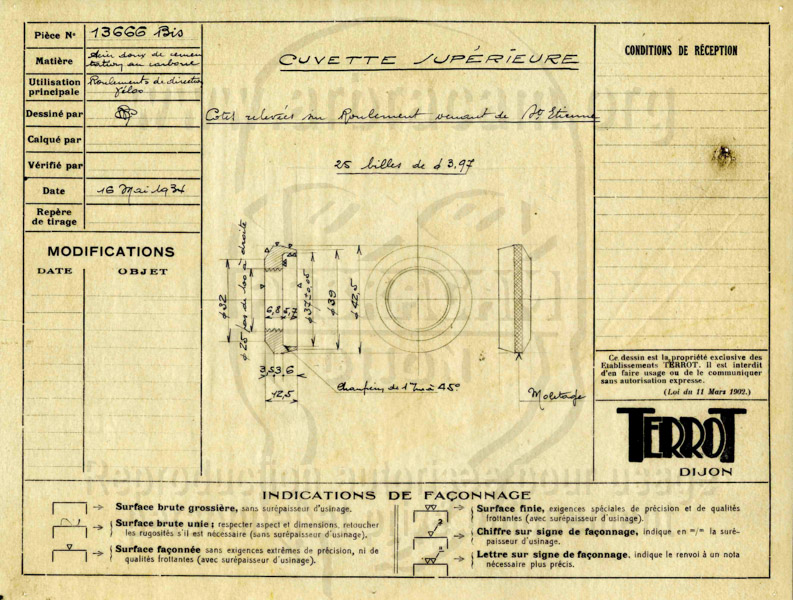 Pièce N° 13666 Bis
Matière Acier doux de cémen
tation au carbone
Utilisation principale Roulements de direction
Vélos
Dessiné par
Calqué par
Vérifié par
Date 16 Mai 1934
Repère de tirage
MODIFICATIONS
DATE OBJET
CUVETTE SUPÉRIEURE
Côtes relevées sur Roulement venant de St Etienne
25 billes de d 3,97
CONDITIONS DE RÉCEPTION
ϕ 32
ϕ 25 pas de 100 à droite
6,8 5,7
ϕ 37 ± 0,05
ϕ 39
ϕ 42,5
3,5 3,6
12,5
Chanfrein de 1 m/m à 45°
Moletage
Ce dessin est la propriété exclusive des
Etablissements TERROT. Il est interdit
d'en faire usage ou de le communiquer
sans autorisation expresse.
(Loi du 11 Mars 1902.)
TERROT
DIJON
INDICATIONS DE FAÇONNAGE
Surface brute grossière, sans surépaisseur d'usinage.
Surface brute unie ; respecter aspect et dimensions, retoucher
les rugosités s'il est nécessaire (sans surépaisseur d'usinage).
Surface façonnée sans exigences extrêmes de précision, ni de
qualités frottantes (avec surépaisseur d'usinage).
Surface finie, exigences spéciales de précision et de qualités
frottantes (avec surépaisseur d'usinage).
2
Chiffre sur signe de façonnage, indique en m/m la suré-
paisseur d'usinage.
a
Lettre sur signe de façonnage, indique le renvoi à un nota
nécessaire plus précis.